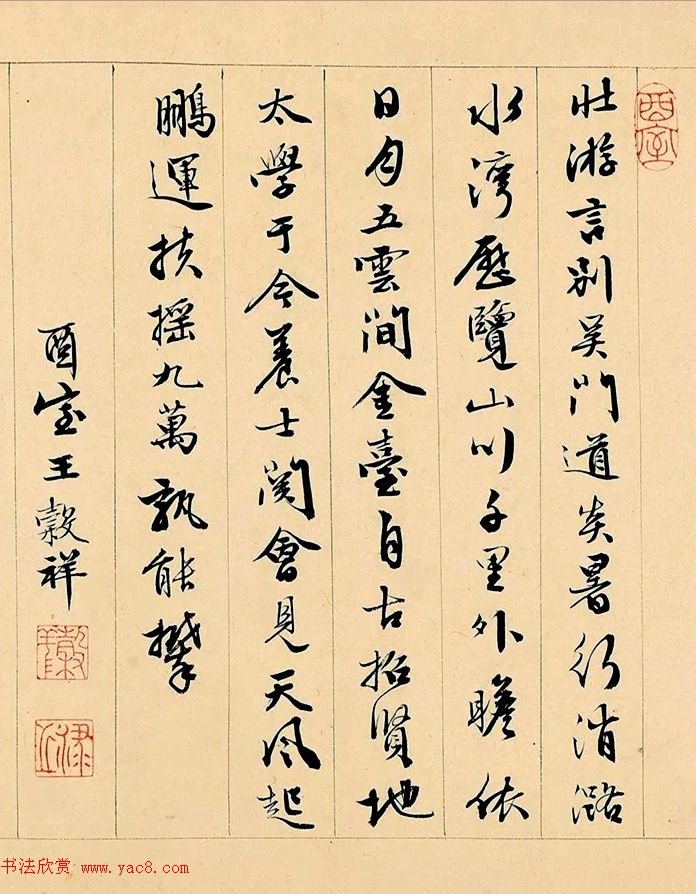 酉室
壯游言別吳門道炎暑行消潞
水灣歷覽山川千里外瞻依
日月五雲間金臺自古招賢地
太學于今養士關會見天風起
鵬運扶摇九萬孰能攀
酉室王穀祥
穀祥
祿之
书法欣赏 www.yac8.com